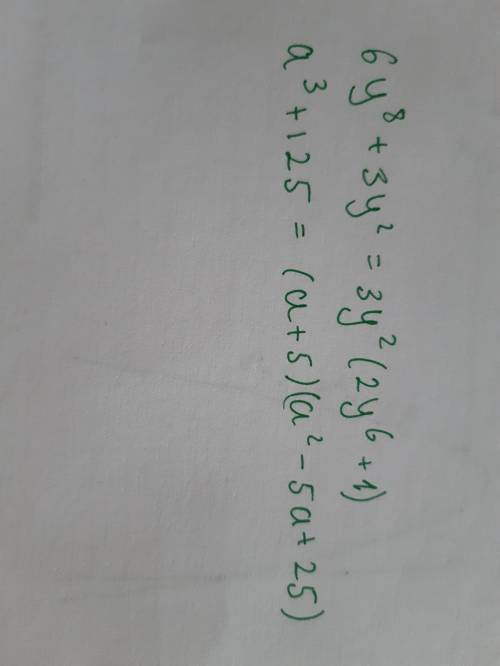 6y⁸ + 3y² = 3y² (2y⁶ + 1)
a³ + 125 = (a + 5)(a² - 5a + 25)